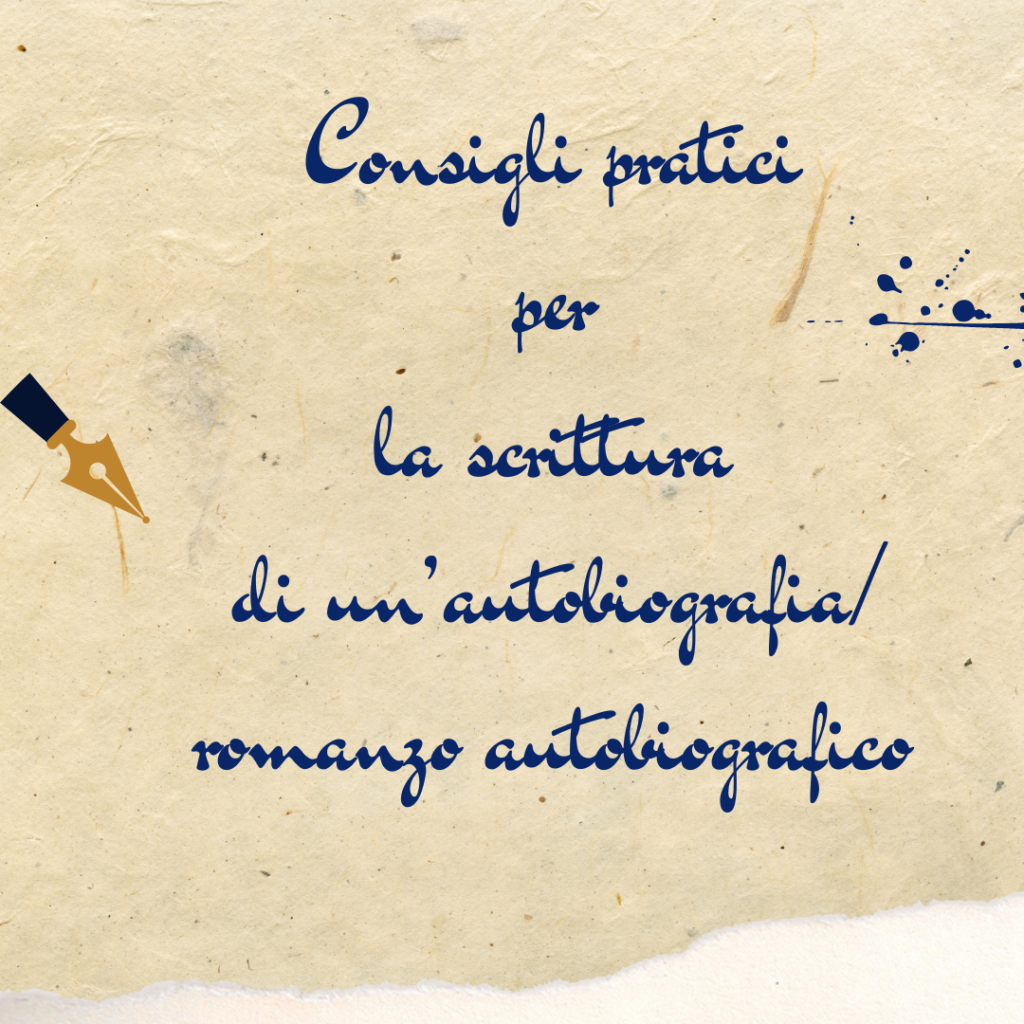 Consigli pratici
per
la scrittura
di un'autobiografia/
romanzo autobiografico